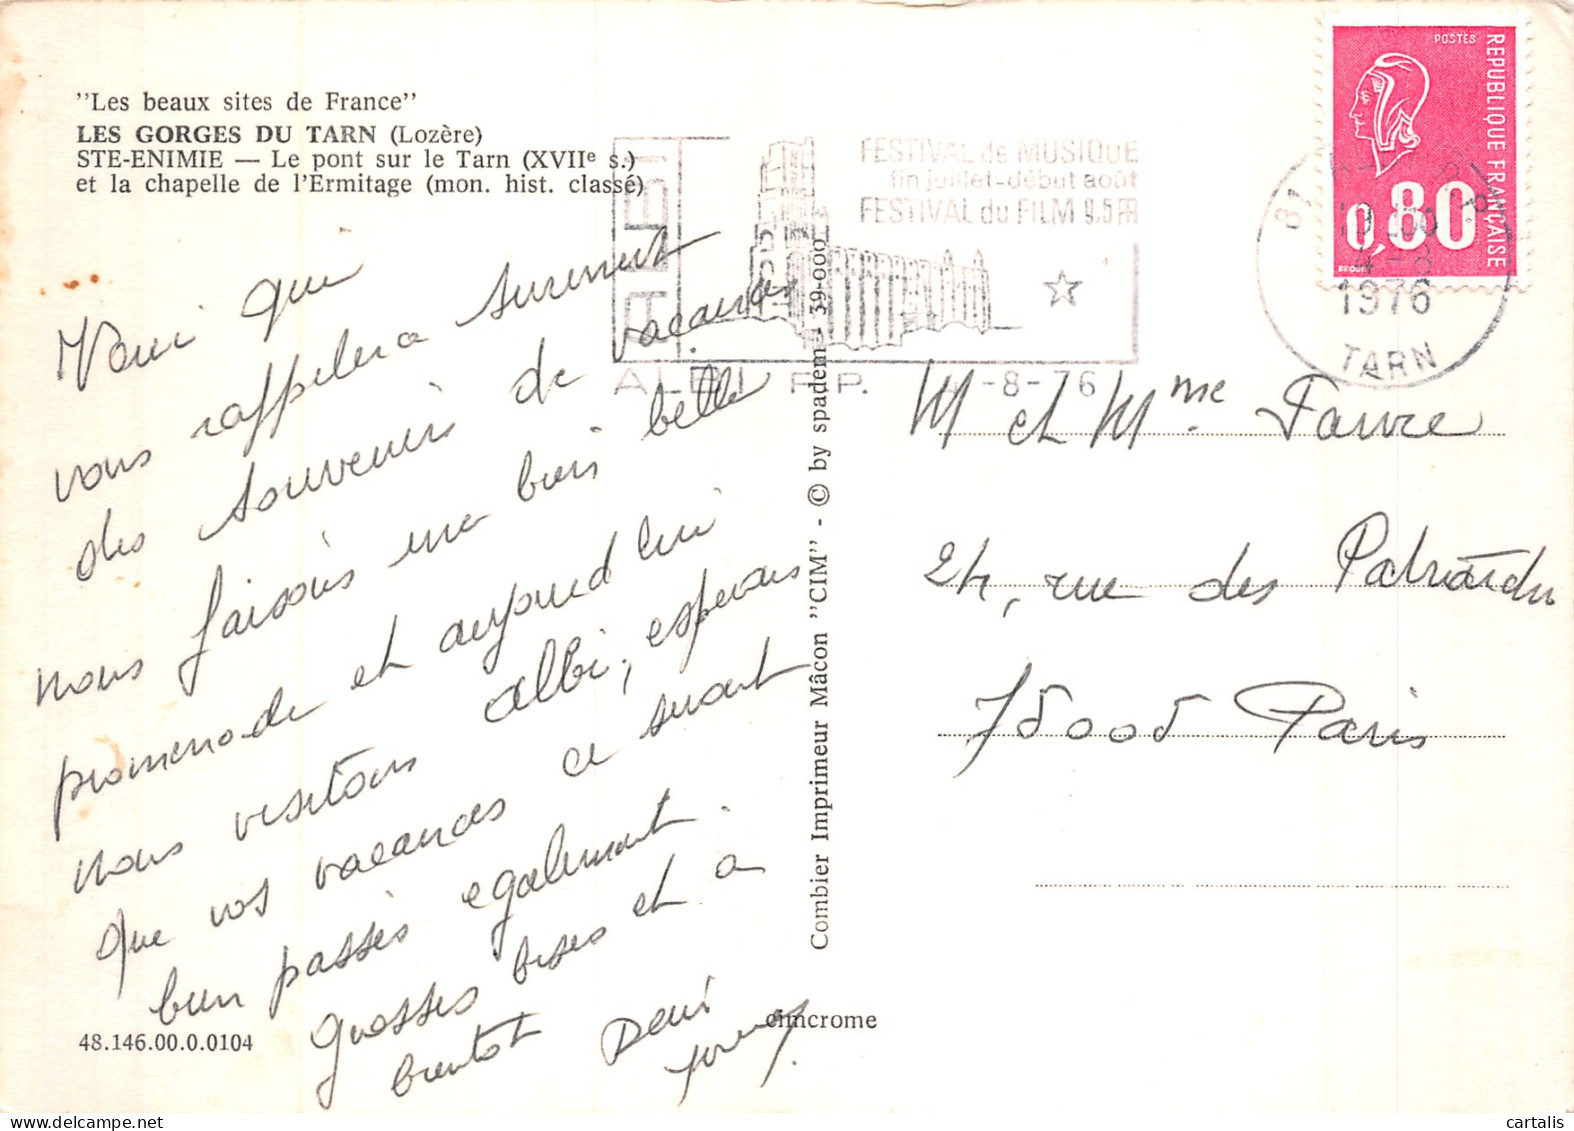 "Les beaux sites de France"
LES GORGES DU TARN (Lozère)
STE-ENIMIE — Le pont sur le Tarn (XVIIe s.)
et la chapelle de l'Ermitage (mon. hist. classé)
Voici que
vous rappelera surement
des souvenirs de vacances
nous faisons une bien belle
promenade et aujourd hui
nous visitons albi, esperons
que vos vacances ce seront
bien passés egalement.
grosses bises et a
bientot
48.146.00.0.0104
cimcrome
Combier Imprimeur Mâcon "CIM" - © by spadem - 39-000
ALBI
FESTIVAL de MUSIQUE
fin juillet-début août
FESTIVAL du FILM 9,5
ALBI P.P. 4-8-76
81 ALBI P.P.
19 H00
4-8
1976
TARN
POSTES
REPUBLIQUE FRANÇAISE
0,80
BEQUET
M et Mme Favre
24, rue des Patriarches
75005 Paris